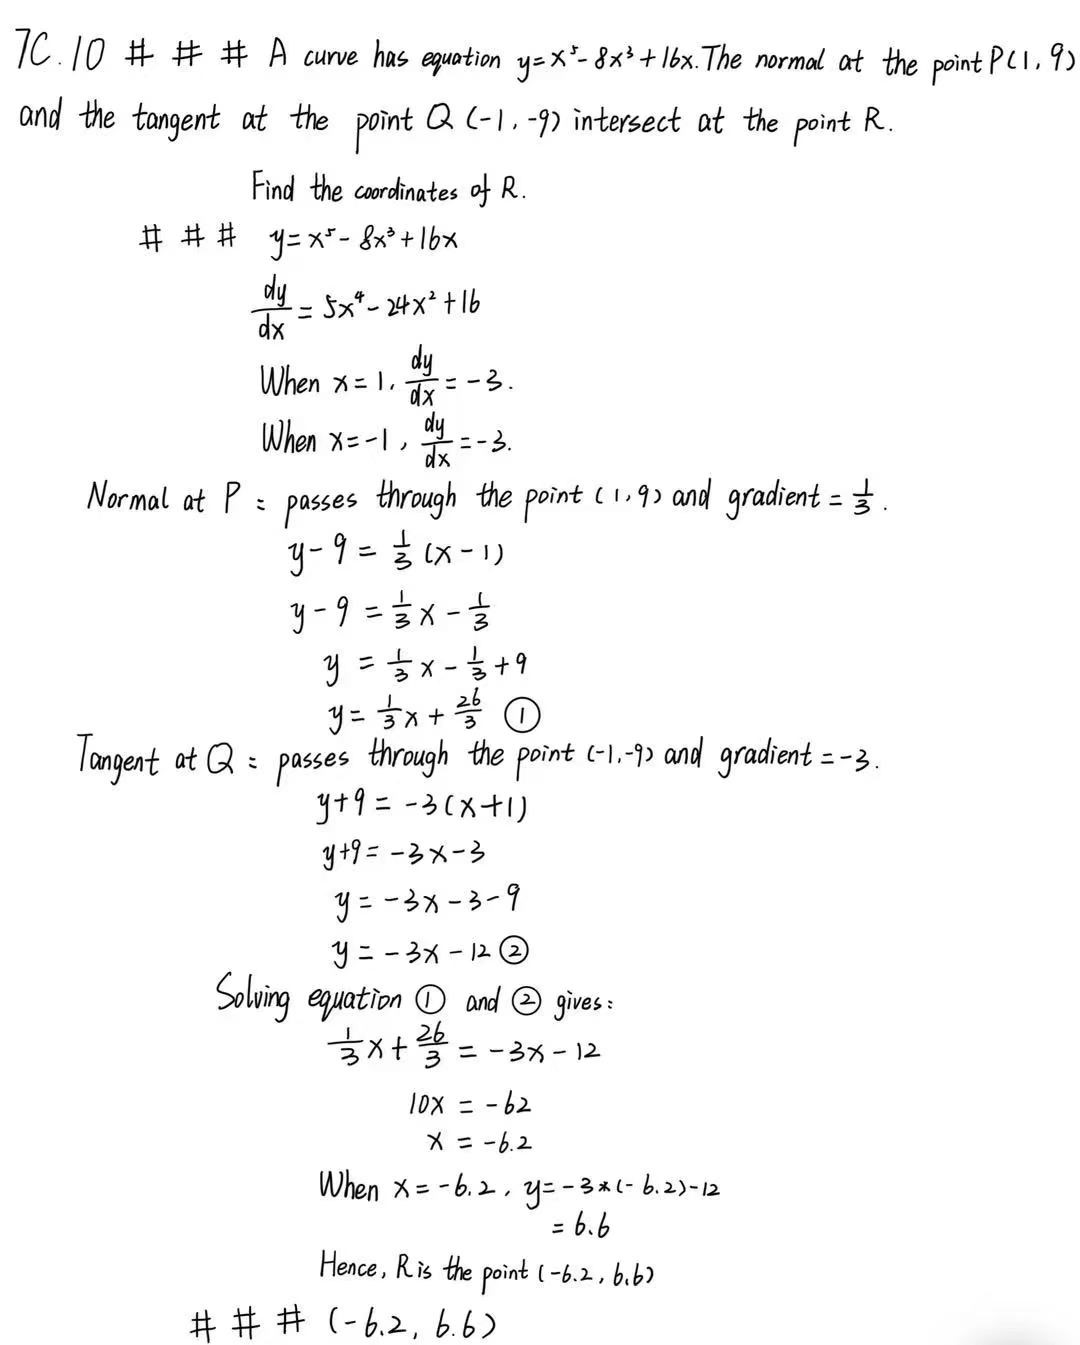 7C.10 # # # A curve has equation y=x⁵-8x³+16x. The normal at the point P(1,9)
and the tangent at the point Q (-1,-9) intersect at the point R.
Find the coordinates of R.
# # # y=x⁵-8x³+16x
dy/dx = 5x⁴-24x²+16
When x=1, dy/dx = -3.
When x=-1, dy/dx = -3.
Normal at P: passes through the point (1,9) and gradient = 1/3.
y-9 = 1/3 (x-1)
y-9 = 1/3 x - 1/3
y = 1/3 x - 1/3 + 9
y = 1/3 x + 26/3 ①
Tangent at Q: passes through the point (-1,-9) and gradient = -3.
y+9 = -3(x+1)
y+9 = -3x-3
y = -3x-3-9
y = -3x-12 ②
Solving equation ① and ② gives:
1/3 x + 26/3 = -3x-12
10x = -62
x = -6.2
When x = -6.2, y = -3*(-6.2)-12
= 6.6
Hence, R is the point (-6.2, 6.6)
# # # (-6.2, 6.6)